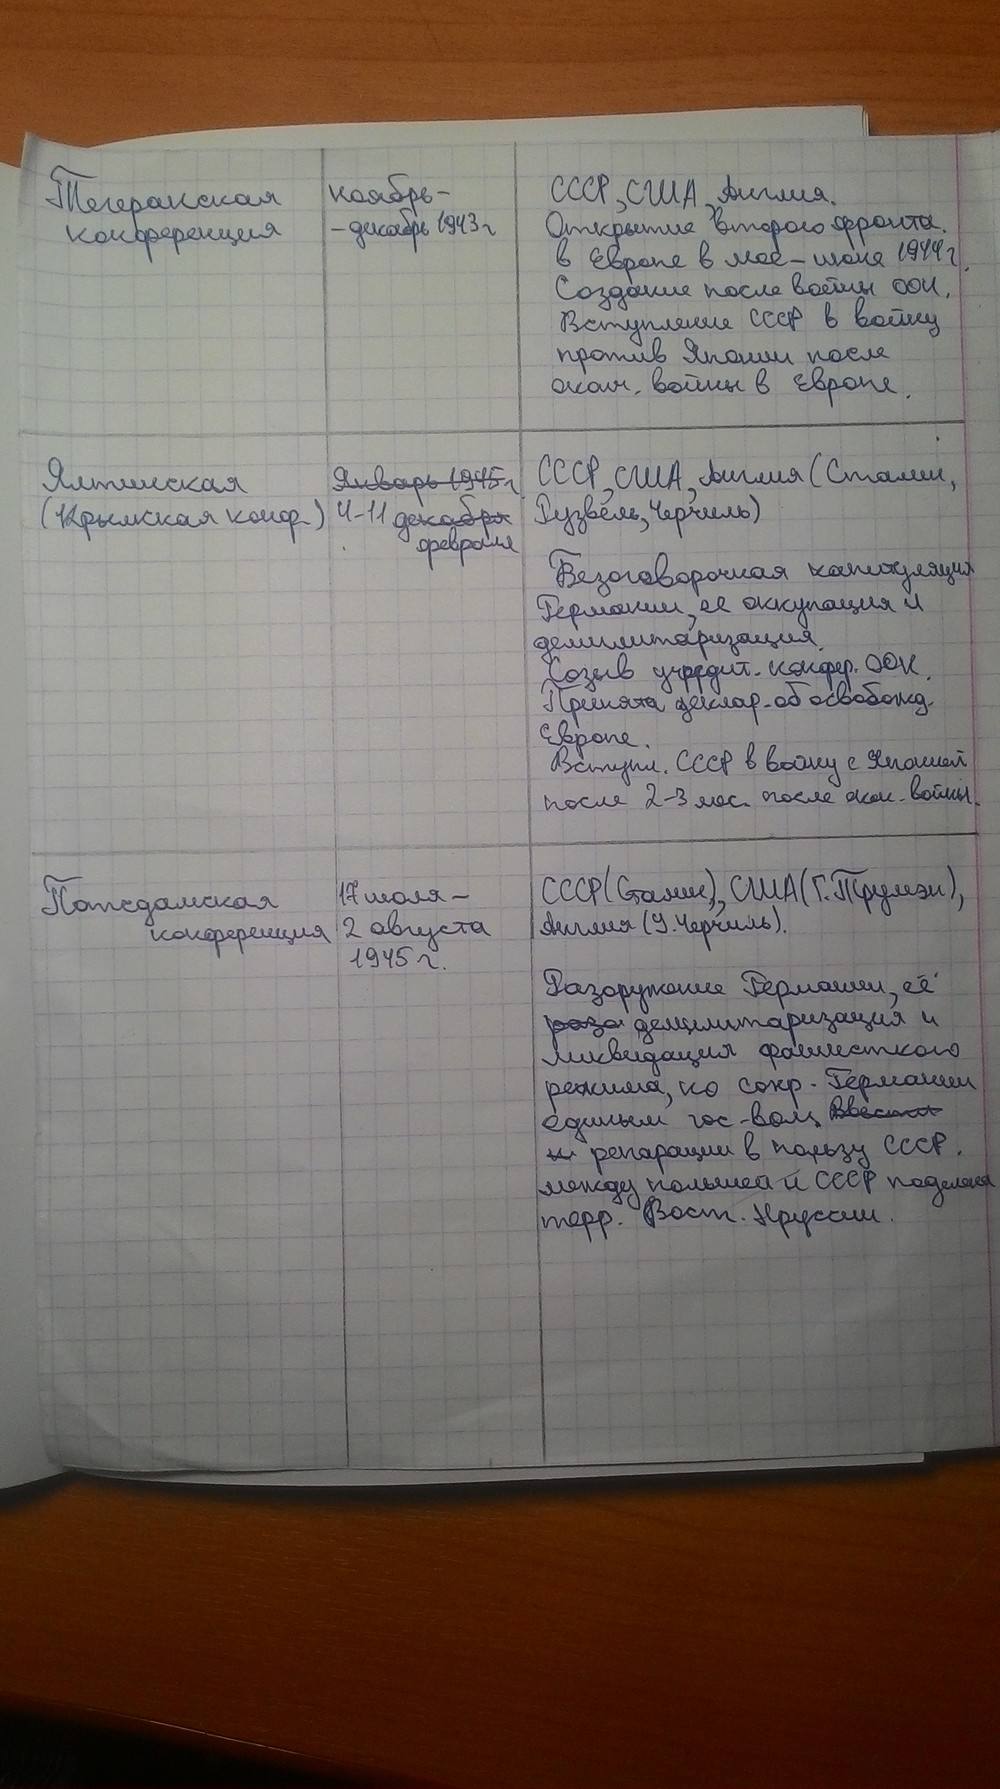 Тегеранская
конференция
ноябрь-
-декабрь 1943 г
СССР, США, Англия.
Открытие второго фронта.
в Европе в мае-июне 1944 г.
Создание после войны ООН.
Вступление СССР в войну
против Японии после
окон. войны в Европе.
Ялтинская
(Крымская конф.)
Январь 1945 г.
4-11 декабря
февраля
СССР, США, Англия (Сталин,
Рузвель, Черчиль)
Безоговорочная капитуляция
Германии, её оккупация и
демилитаризация.
Созыв учредит. конфер. ООН.
Принята деклар. об освобожд.
Европе.
Вступл. СССР в войну с Японией
после 2-3 мес. после окон. войны.
Потсдамская
конференция
17 июля-
2 августа
1945 г.
СССР (Сталин), США (Г. Трумэн),
Англия (У. Черчиль).
Разоружение Германии, её
разо демилитаризация и
ликвидация фашисткого
режима, но сохр. Германии
единым гос-вом. Ввести
и репарации в пользу СССР.
между польшей и СССР поделена
терр. Вост. Пруссии.